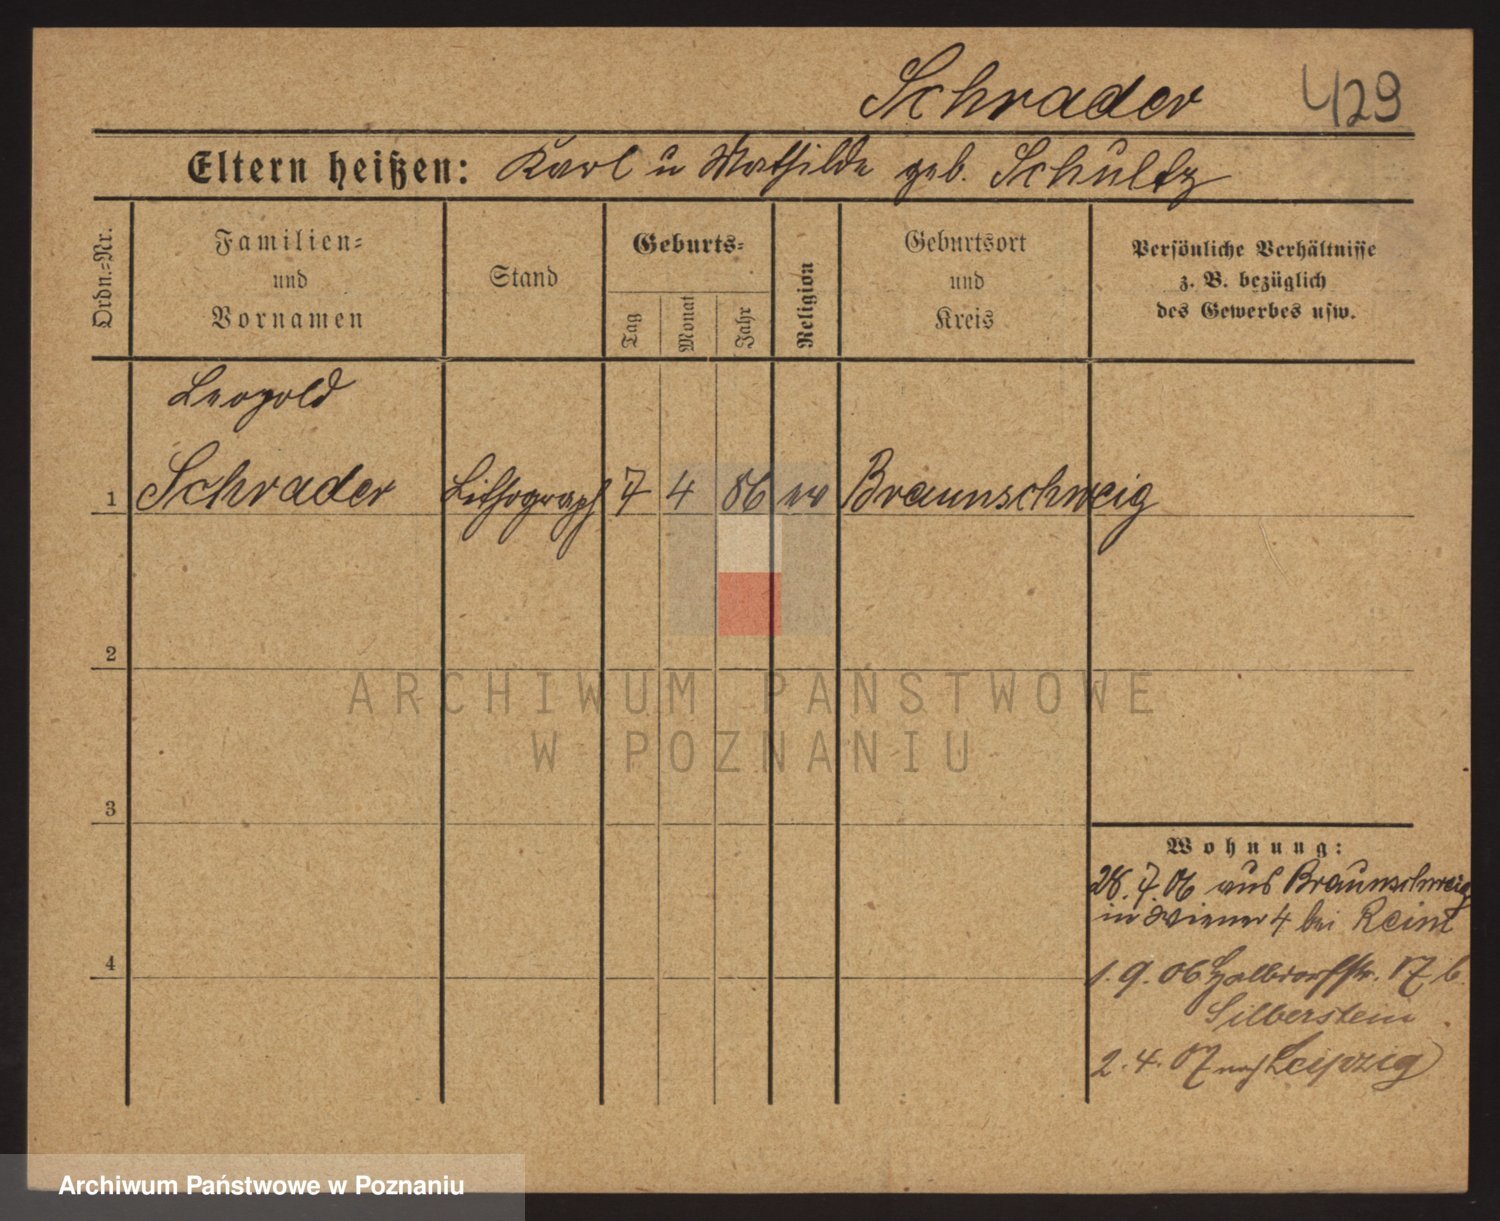 Schrader 429
Eltern heißen: Karl u Mathilde geb. Schultz
Ordn.=Nr.
Familien=
und
Vornamen
Stand
Geburts=
Tag
Monat
Jahr
Religion
Geburtsort
und
Kreis
Persönliche Verhältnisse
z. B. bezüglich
des Gewerbes usw.
Leopold
1 Schrader Lithograph 7 4 86 ev Braunschweig
2
ARCHIWUM PAŃSTWOWE
W POZNANIU
3
Wohnung:
28.7.06 aus Braunschweig
in Wiener 4 bei
4
1.9.06 17 b.
Silberstein
2.4.07 nach Leipzig
Archiwum Państwowe w Poznaniu